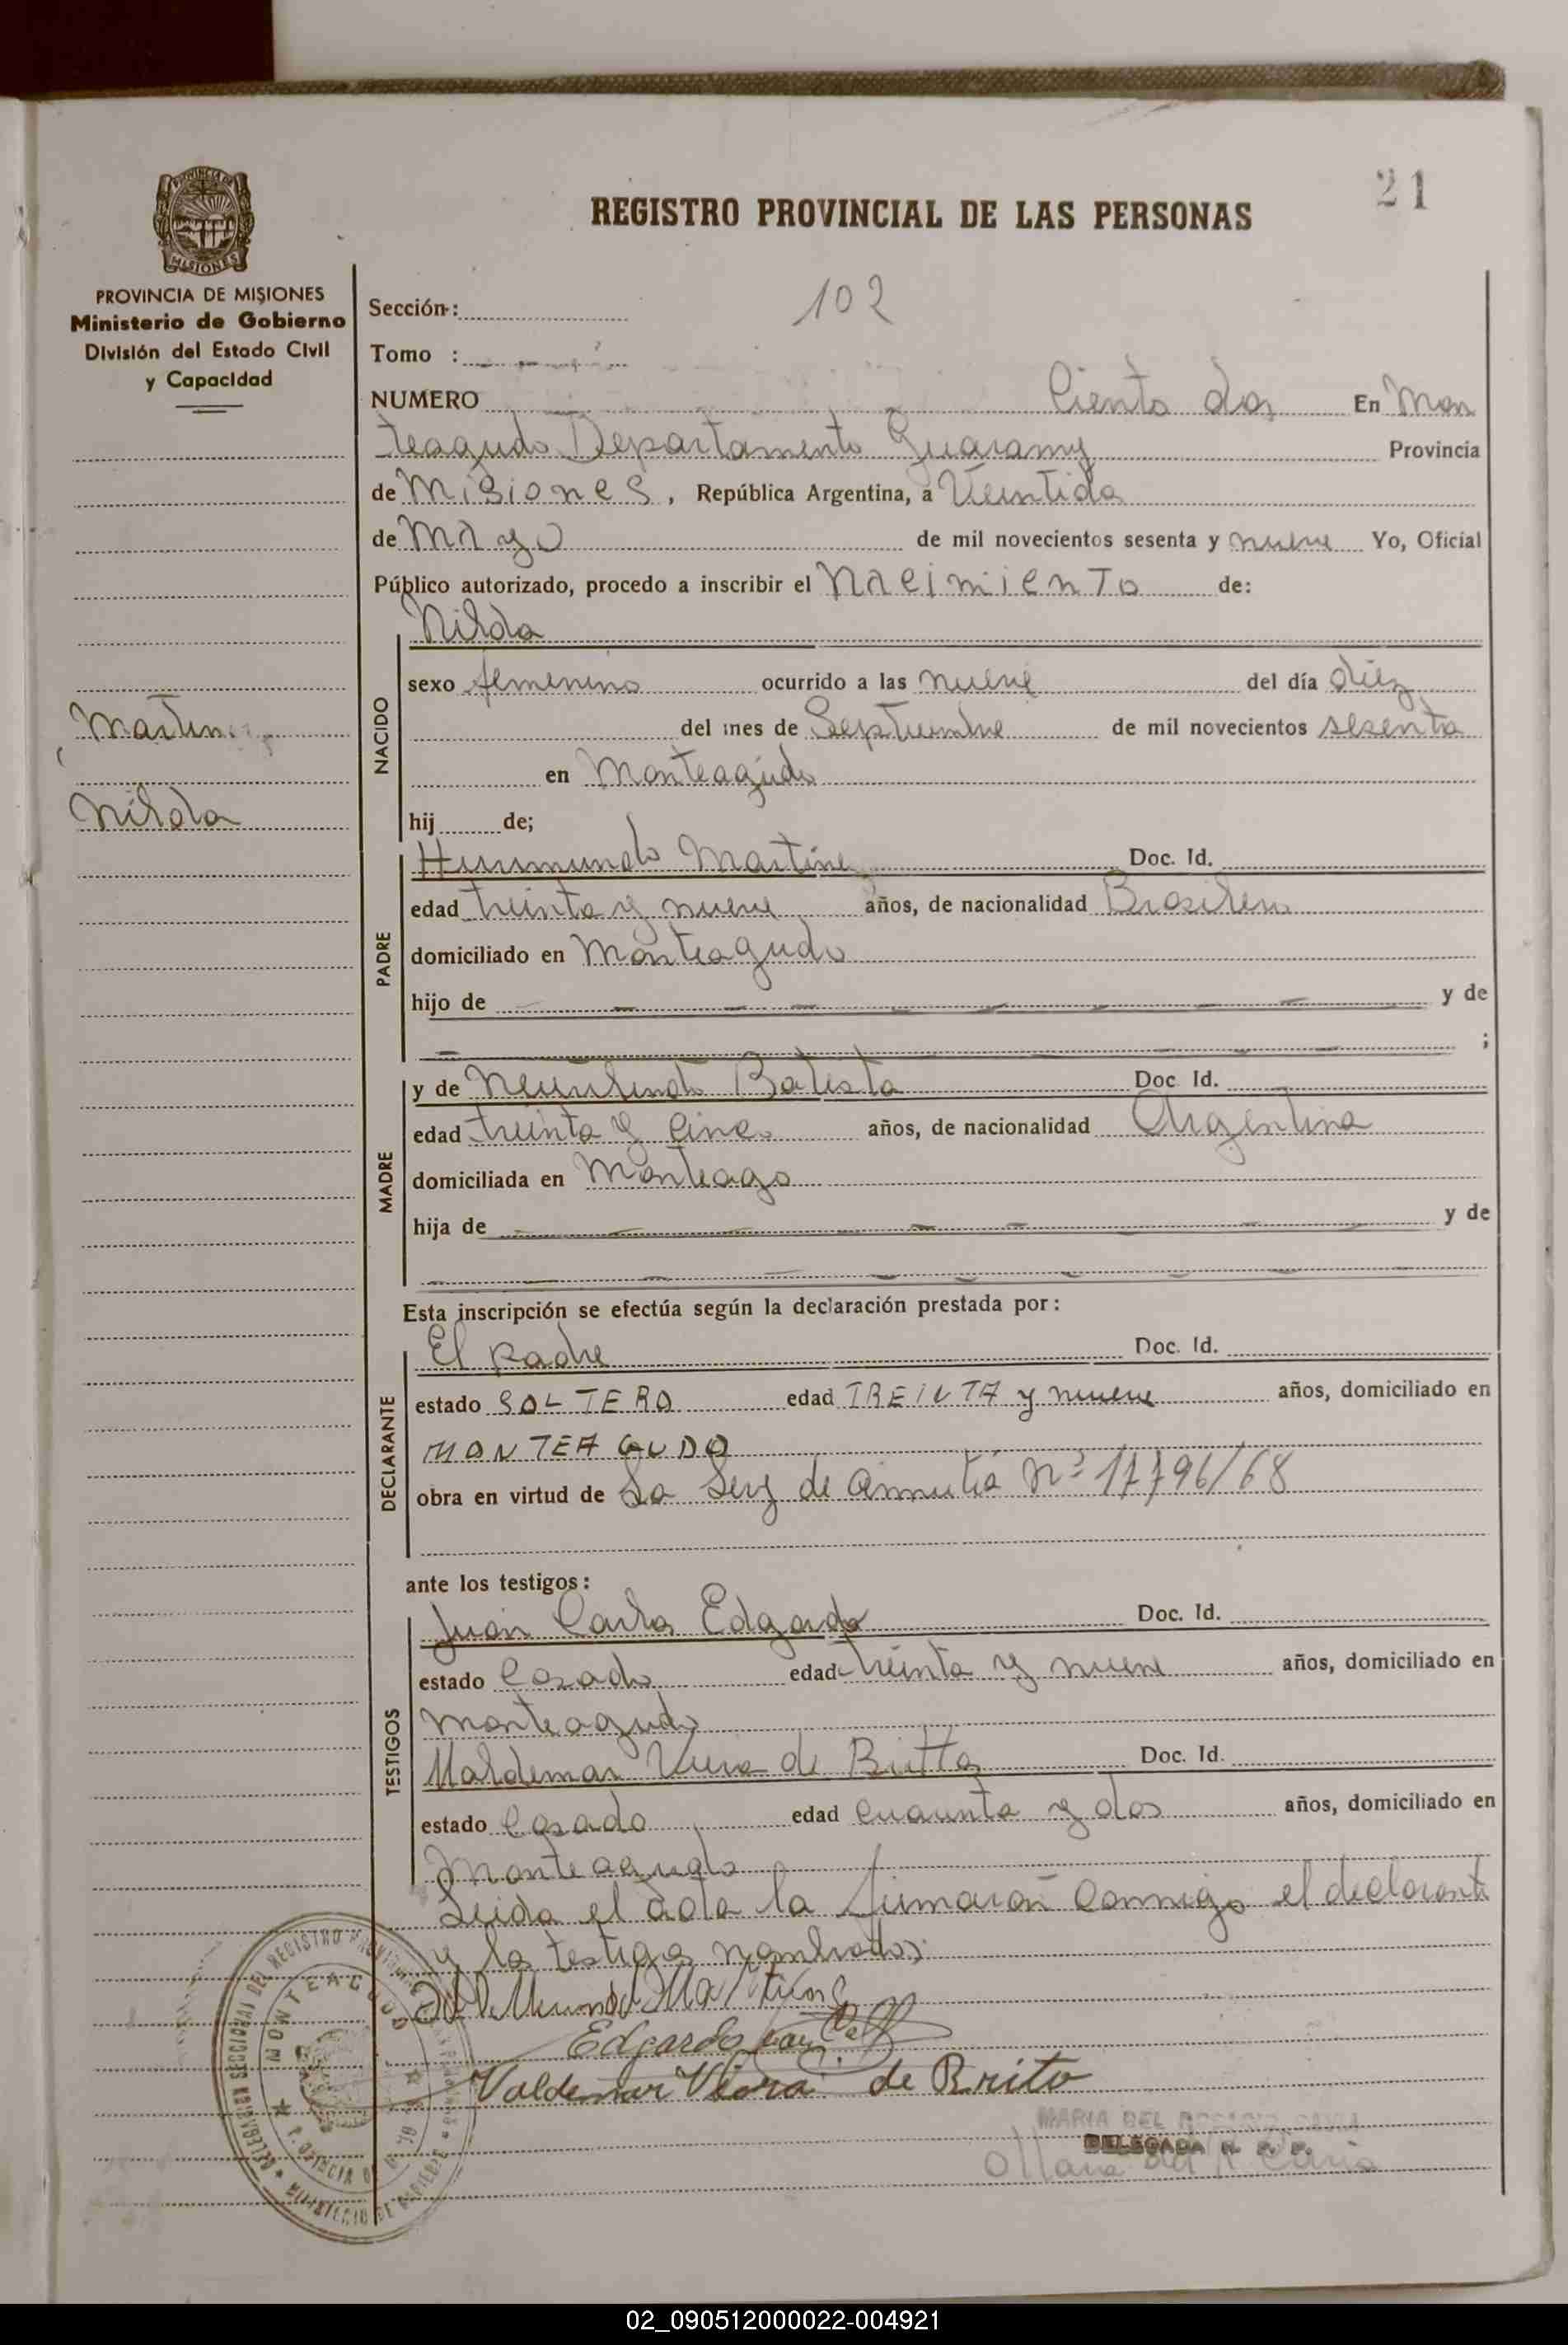 21
REGISTRO PROVINCIAL DE LAS PERSONAS
PROVINCIA DE MISIONES
MISIONES
PROVINCIA DE MISIONES
Ministerio de Gobierno
División del Estado Civil
y Capacidad
Martinez
Nilda
102
Sección:
Tomo :
NUMERO Ciento dos En Mon
teagudo Departamento Guaramy Provincia
de Misiones, República Argentina, a Veintido
de Mayo de mil novecientos sesenta y nueve Yo, Oficial
Público autorizado, procedo a inscribir el Nacimiento de:
NACIDO
Nilda
sexo femenino ocurrido a las nueve del día diez
del mes de Septiembre de mil novecientos sesenta
en Monteagudo
hij de;
PADRE
Martinez Doc. Id.
edad treinta y nueve años, de nacionalidad Brasilero
domiciliado en Monteagudo
hijo de y de
;
MADRE
y de Batista Doc. Id.
edad treinta y cinco años, de nacionalidad Argentina
domiciliada en Monteago
hija de y de
Esta inscripción se efectúa según la declaración prestada por:
DECLARANTE
El padre Doc. Id.
estado SOLTERO edad TREINTA y nueve años, domiciliado en
MONTEAGUDO
obra en virtud de La Ley de Nº 17796/68
ante los testigos:
TESTIGOS
Juan Carlos Edgardo Doc. Id.
estado Casado edad treinta y nueve años, domiciliado en
Monteagudo
Valdemar de Doc. Id.
estado Casado edad cuarenta y dos años, domiciliado en
Monteagudo
Leida el acta la firmaron conmigo el declarante
y los testigos nombrados
Edgardo
Valdemar Viera de Brito
MARIA DEL
DELEGADA R. P. P.
MONTEAGUDO
02_090512000022-004921